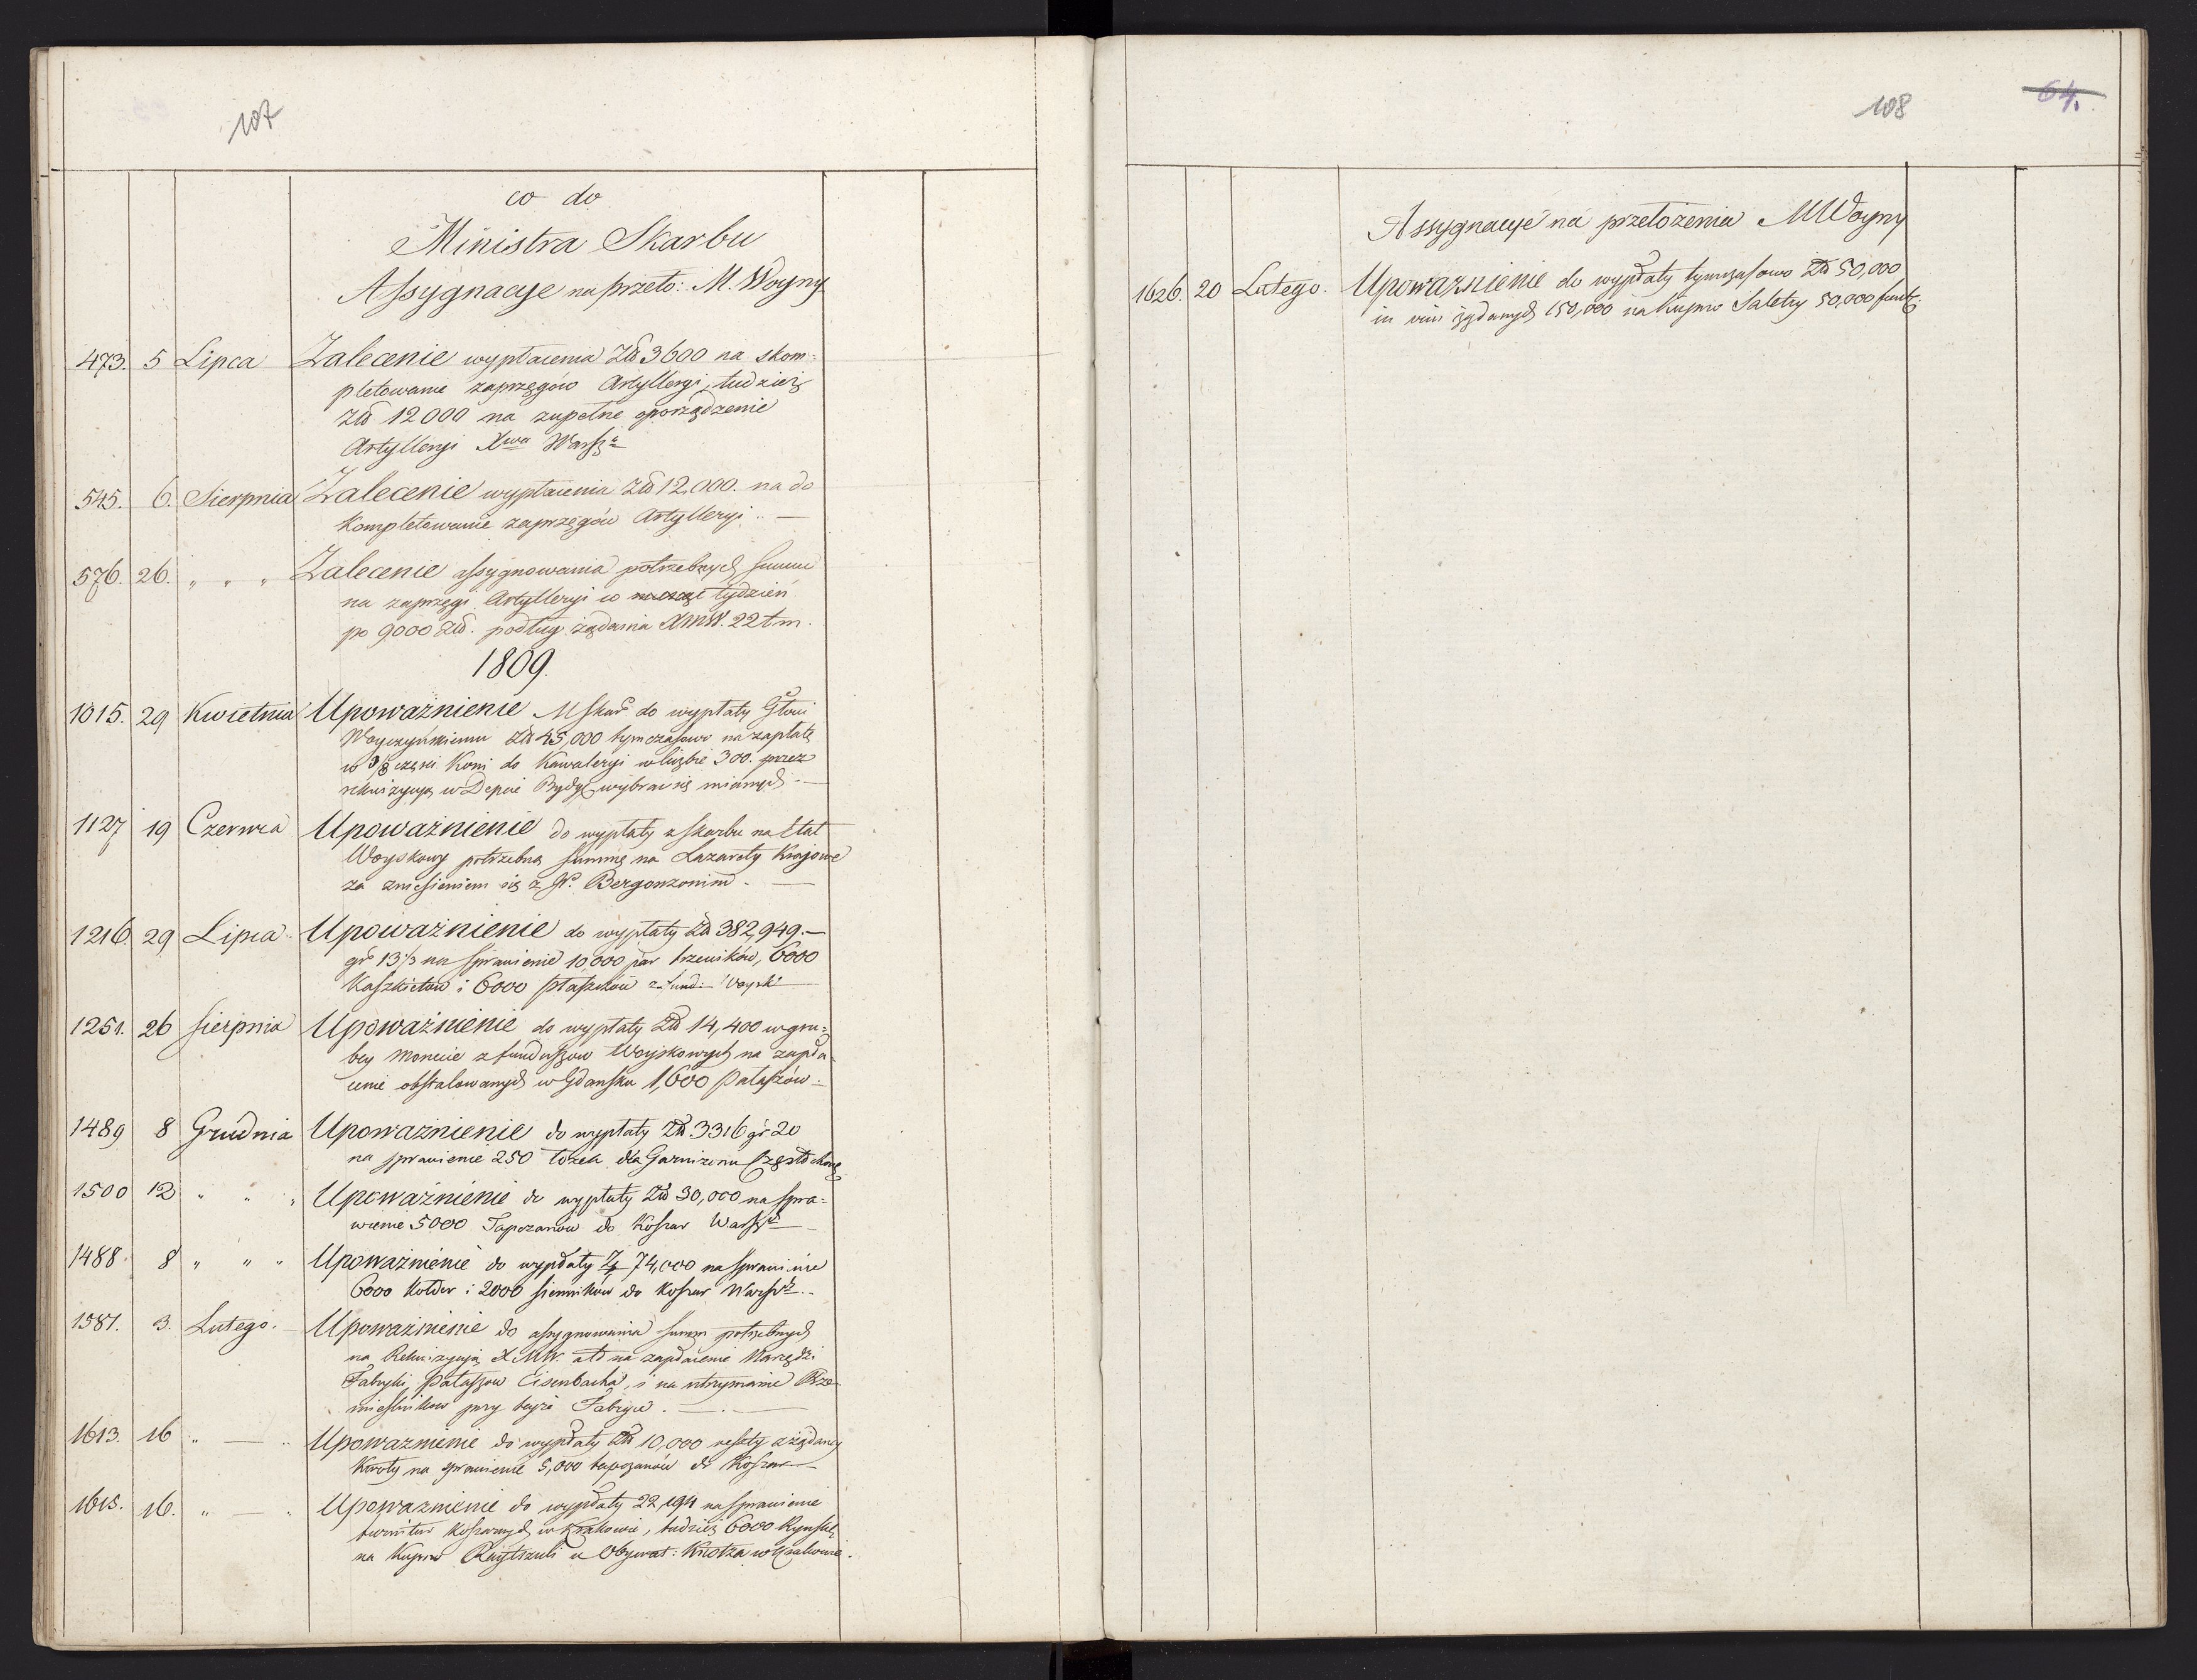 107
co do
Ministra Skarbu
Assygnacye na przeło: M. Woyny
473. 5 Lipca Zalecenie wypłacenia Złł 3600 na skom-
pletowanie zaprzęgów Artylleryi, tudzież
Złł 12000 na zupełne sporządzenie
Artylleryi Xwa Warsz:
545. 6. Sierpnia Zalecenie wypłacenia Złł 12,000. na do
kompletowanie zaprzęgów Artylleryi. —
576. 26. " " " Zalecenie assygnowania potrzebnych summ
na zaprzęgi Artylleryi co tydzień
po 9000 Złł. podług żądania XMW. 22 t m.
1809.
1015. 29 Kwietnia Upoważnienie MSkar do wypłaty
Woyczyńskiemu Złł 45,000 tymczasowo na zapłatę
w 3/8 części Koni do Kawaleryi w liczbie 300. przez
rekwizycyą w Depcie Bydg wybrać się mianych —
1127 19 Czerwca Upoważnienie do wypłaty z skarbu na Etat
Woyskowy potrzebną summę na Lazarety Krajowe
za zniesieniem się z JP. Bergonzonim. —
1216. 29 Lipca Upoważnienie do wypłaty Złł 382,949.—
gr 13 1/3 na sprawienie 10,000 par trzewików, 6000
Kaszkietów i 6000 płaszczów z fund: Woysk:
1251. 26 Sierpnia Upoważnienie do wypłaty Złł 14,400 w gru=
bey monecie z funduszów Woyskowych na zapła-
cenie obstalowanych w Gdańsku 1,600 Pałaszów.
1489 8 Grudnia Upoważnienie do wypłaty Złł 3316 gr 20
na sprawienie 250 łóżek dla Garnizonu Częstochow
1500 12 " " " Upoważnienie do wypłaty Złł 30,000 na spra=
wienie 5000 Tapczanów do Koszar Warsz:
1488 8 " " " Upoważnienie do wypłaty Zł 74,000 na sprawienie
6000 kołder i 2000 sienników do koszar Warsz:
1581. 3. Lutego. Upoważnienie do assygnowania summ potrzebnych
na Rekwizycyją XMW. na zapłacenie Narzędzi
Fabryki Pałaszów Eisenbacha, i na utrzymanie Rze-
mieślników przy teyże Fabryce. —
1613. 16 " — " Upoważnienie do wypłaty Złł 10,000 reszty z żądaney
Kwoty na sprawienie 5,000 tapczanów do Koszar
1615. 16. " — " Upoważnienie do wypłaty 22,194 na sprawienie
furnitur koszarnych w Krakowie, tudzież 6000 Rynsk
na kupno Raytszuli u Obywat: Krotza w Krakowie.
108
64.
Assygnacye na przełożenia MWoyny
1626. 20 Lutego. Upoważnienie do wypłaty tymczasowo Złł 50,000
in vim żądanych 150,000 na kupno Saletry 50,000 funt: